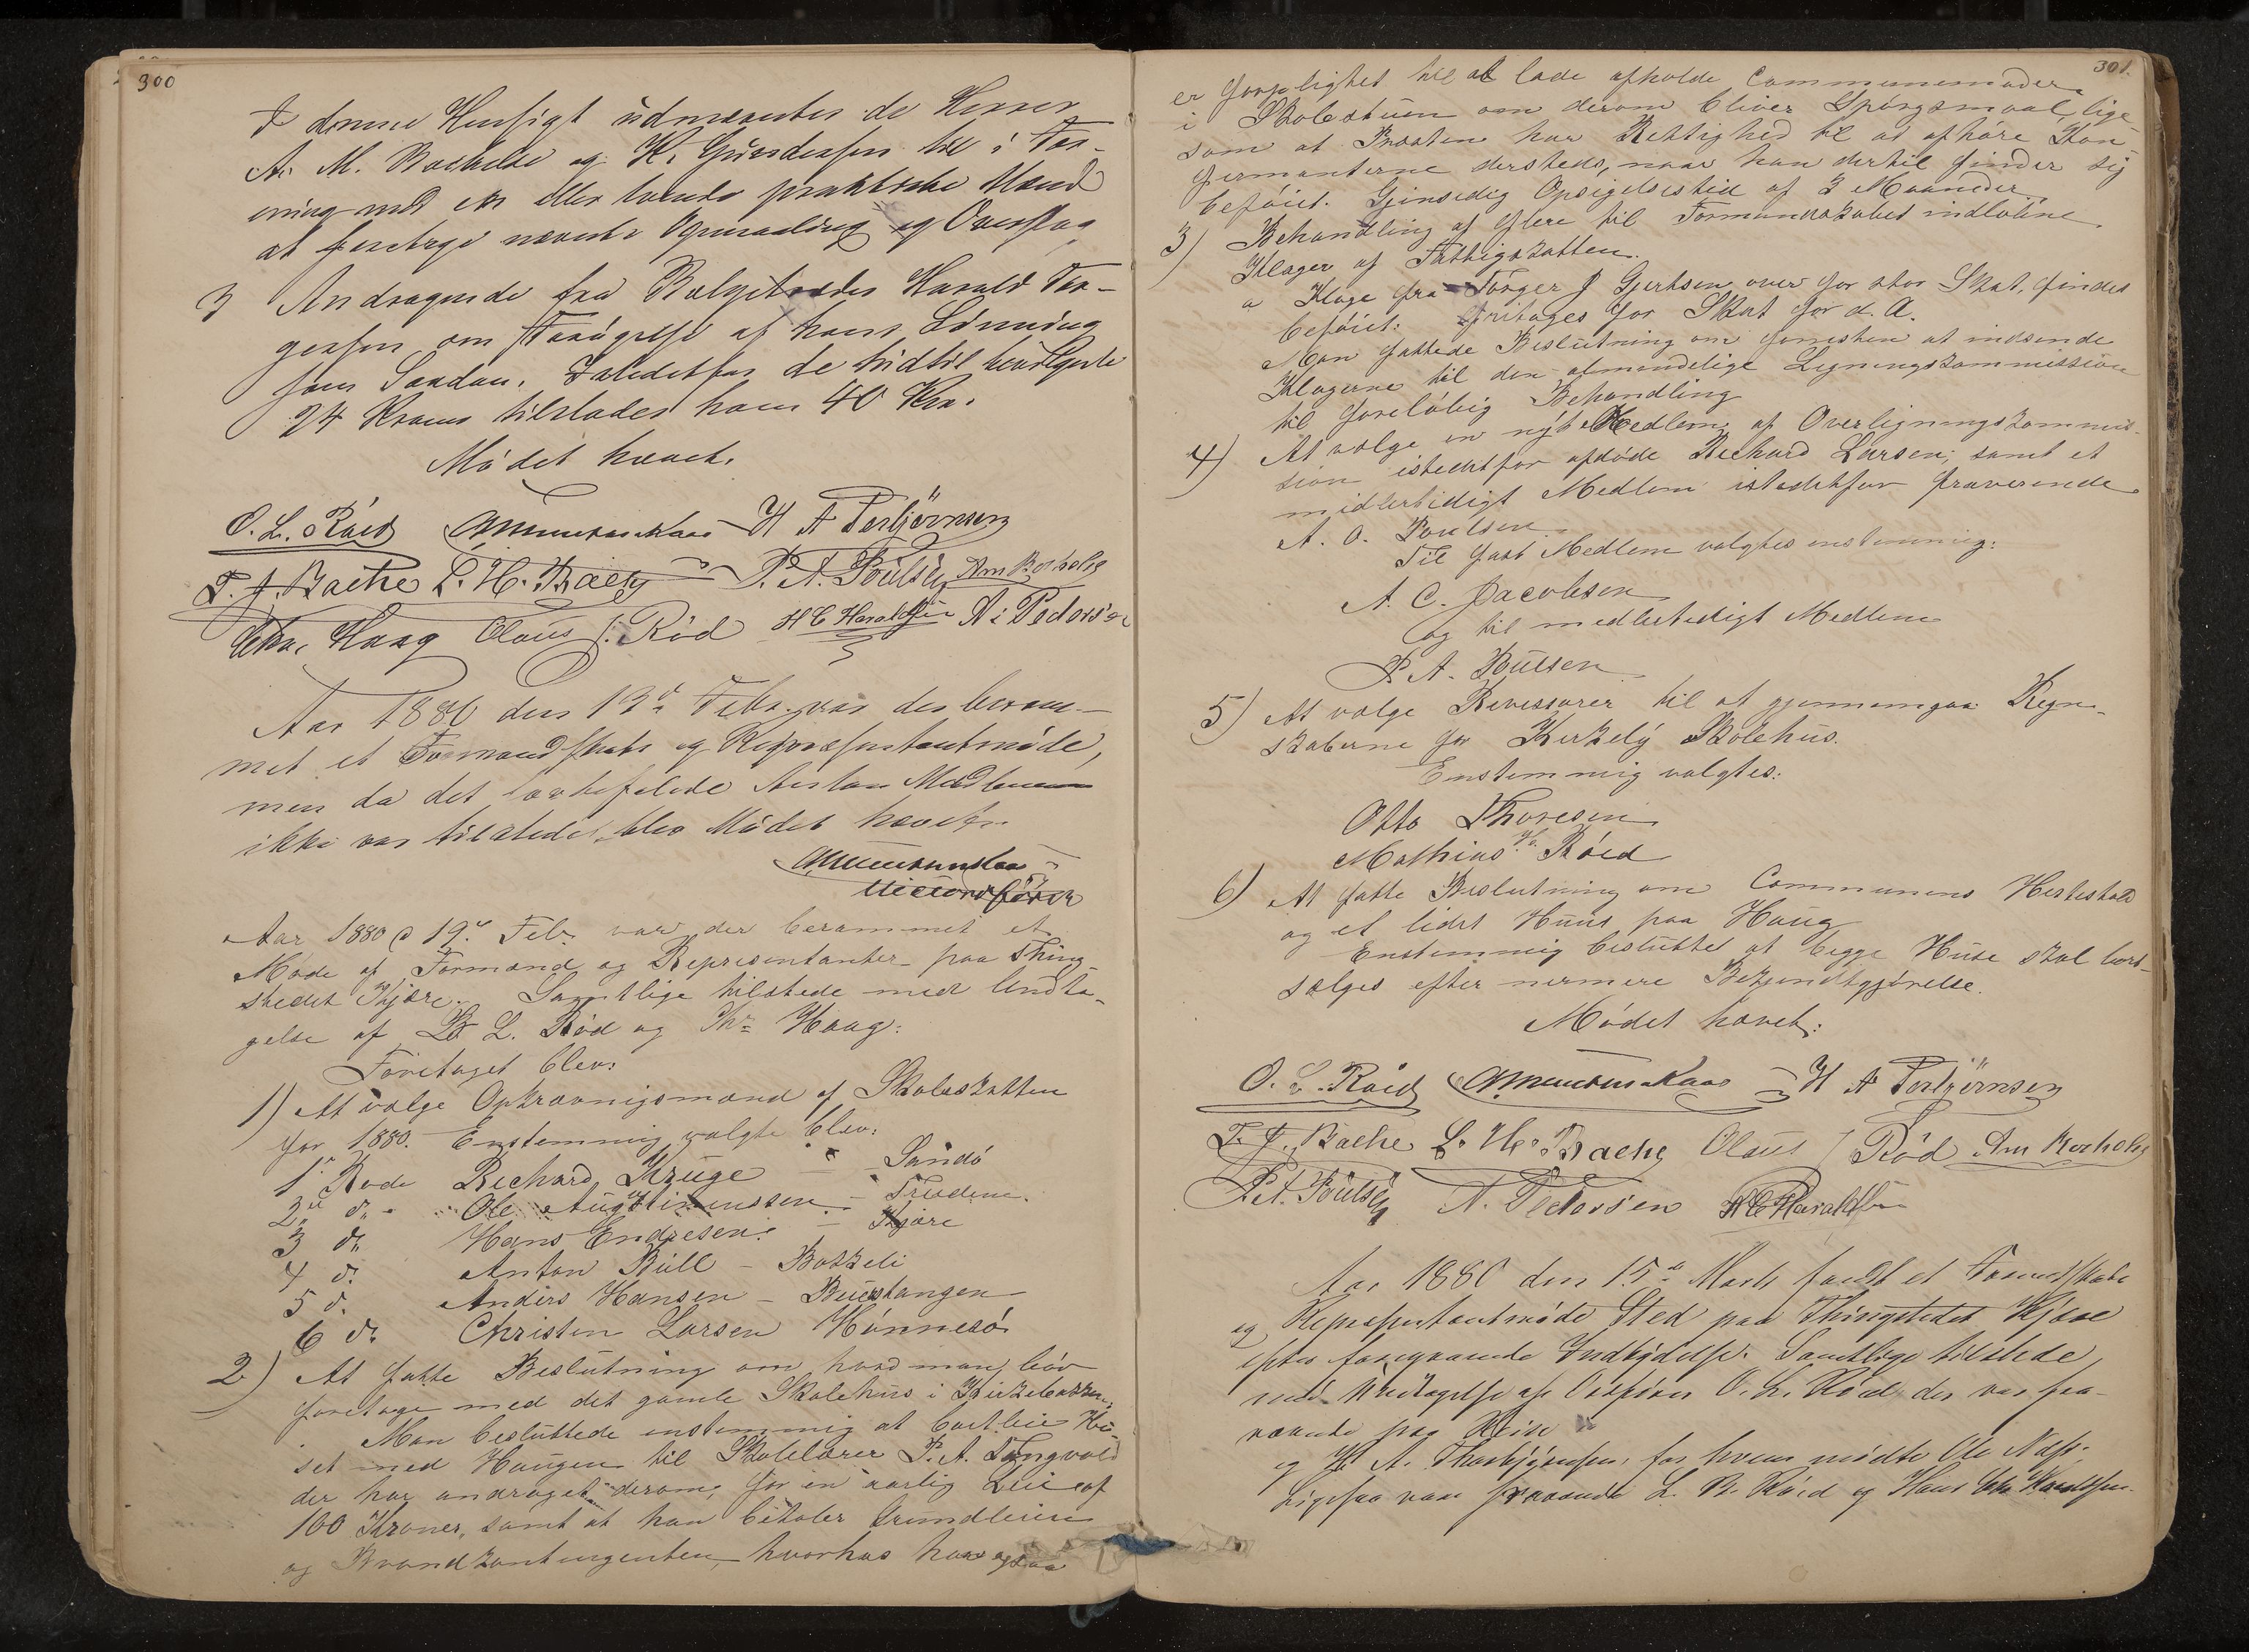 300
I denne Hensigt udnævntes de Herrer
A. M. og K. Gundersen til i For-
ening med en eller tvende praktiske Mænd
at foretage nævnte Opmaaling og Overslag
3 Andragende fra Harald Tor-
gersen om Forøgelse af hans Lønning
som Saadan. Istedetfor de hidtil
24 Kroner tilstades ham 40 Kr.
Mødet hævet.
O. L. Röed H A Torbjörnsen
T. J. Bache L. H. Bache P. A. Poulsen
Chr. Haag Olaus J. Röd H C Haraldsen A: Pedersen
Aar 1880 den 13de Febr. var der beram-
met et Formandskabs og Repræsentantmøde,
men da det lovbefalede Antal Medlemmer
ikke var tilstede, blev Mødet hævet.
Aar 1880 d 19de Feb. var der berammet et
Møde af Formænd og Representanter paa Thing
stedet Kjære. Samtlige tilstede med Undta-
gelse af L. Röd og Chr Haag:
Foretaget blev:
1) At vælge Opkrævnigsmænd af Skoleskatten
for 1880. Enstemmig valgte blev:
1ste Rode Richard Kruge – Sandö
2den d. Ole – Treidene.
3 d. Hans Endresen – Kjære
4 d. Anton Bull –
5 d. Anders Hansen –
6 d. Christen Larsen Hönnesö
2) At fatte Beslutning om hvad man bör
foretage med det gamle Skolehus i
Man besluttede enstemmig at bortleie Hu-
set med Haugen til Skolelærer P. A.
der har andraget derom, for en aarlig Leie af
100 Kroner, samt at han betaler Grundleien
og Brandkontingenten, hvorhos han ogsaa
301.
er forpligtet til at lade afholde Communemøder
i Skolestuen om derom bliver Spörgsmaal, lige
som at Præsten har Rettighed til at afhöre Kon-
firmanterne dersteds, naar han dertil finder sig
beföiet. Gjensedig Opsigelsestid af 3 Maaneder
3) Behandling af flere til Formandskabet indlöbne
Klager af Fattigskatten.
a Klage fra Torger J Gjertsen over for stor Skat, findes
beföiet. fritages for Skat for d. A.
Man fattede Beslutning om forresten at indsende
Klagerne til den almindelige Ligningskommission
til foreløbig Behandling
4) At vælge en nyt Medlem af Overligningskommis-
sion istedetfor afdöde Richard Larsen, samt et
midlertidigt Medlem istedetfor fraverende
A. O. Poulsen
Til fast Medlem valgtes enstemmig:
A. C. Jacobsen
og til medlertedigt Medlem
P. A. Poulsen
5) At vælge Revissorer til at gjennemgaa Regn-
skaberne for Kirkely Skolehus.
Enstemmig valgtes:
Otto Thoresen
Mathias Röed
6) At fatte Beslutning om Communens Hestestald
og et lidet Huus paa Haug
Enstemmig besluttet at begge Huse skal bort-
sælges efter nærmere Bekjendtgjörelse.
Mödet hævet:
O. L. Röed H A Torbjörnsen
T. J. Bache L. H. Bache Olaus J Röd
P. A. Poulsen A. Pedersen H C Haraldsen
Aar 1880 den 15de Marts fandt et Formandskabs
og Repræsentantmøde Sted paa Thingstedet Kjære
efter foregaaende Indbydelse. Samtlige tilstede,
med Undtagelse af Ordfører O. L. Röed der var fra-
værende paa Reise
og H. A. Thorbjørnsen, for hvem mødte Ole
Ligesaa var fraværende L. Röed og Hans Chr Haraldsen.